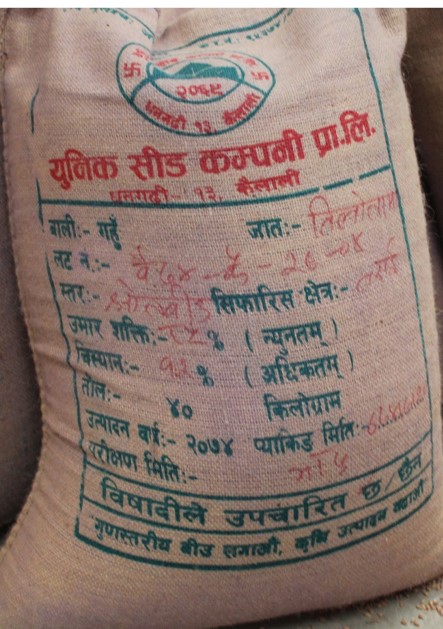 २०६९
धनगढी १३, कैलाली
युनिक सीड कम्पनी प्रा.लि.
धनगढी-१३, कैलाली
बाली:- गहुँ जात:- तिलोत्तमा
लट नं.:-
स्तर:- सिफारिस क्षेत्र:- तराई
उमार शक्ति:- % ( न्युनतम् )
चिस्यान:- १२ % ( अधिकतम् )
तौल:- ४० किलोग्राम
उत्पादन वर्ष:- २०७४ प्याकिङ मिति:-
परीक्षण मिति:-
विषादीले उपचारित छ / छैन
गुणस्तरीय बीउ लगाऔं, कृषि उत्पादन बढाऔं